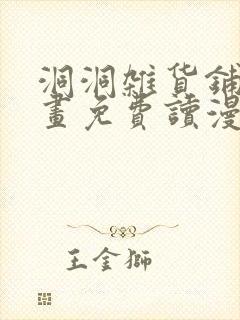 洞洞雜貨鋪
畫免費讀漫
王金獅